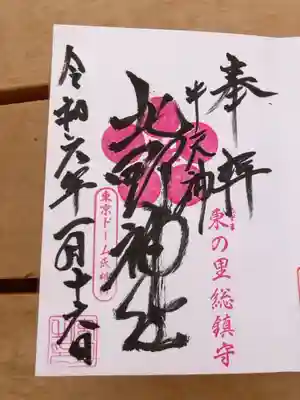 奉拝
東の里総鎮守
牛天神
北野神社
東京ドーム氏神
令和六年一月十六日